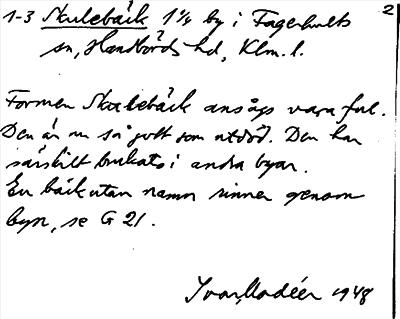 1-3 Skulebäck 1 1/4 by i Fagerhults 2
sn, Handbörds hd, Klm. l.
Formen Skulebäck ansågs vara ful.
Den är nu så gott som utdöd. Den har
särskilt brukats i andra byar.
En bäck utan namn rinner genom
byn, se G 21.
Ivar Modéer 1948